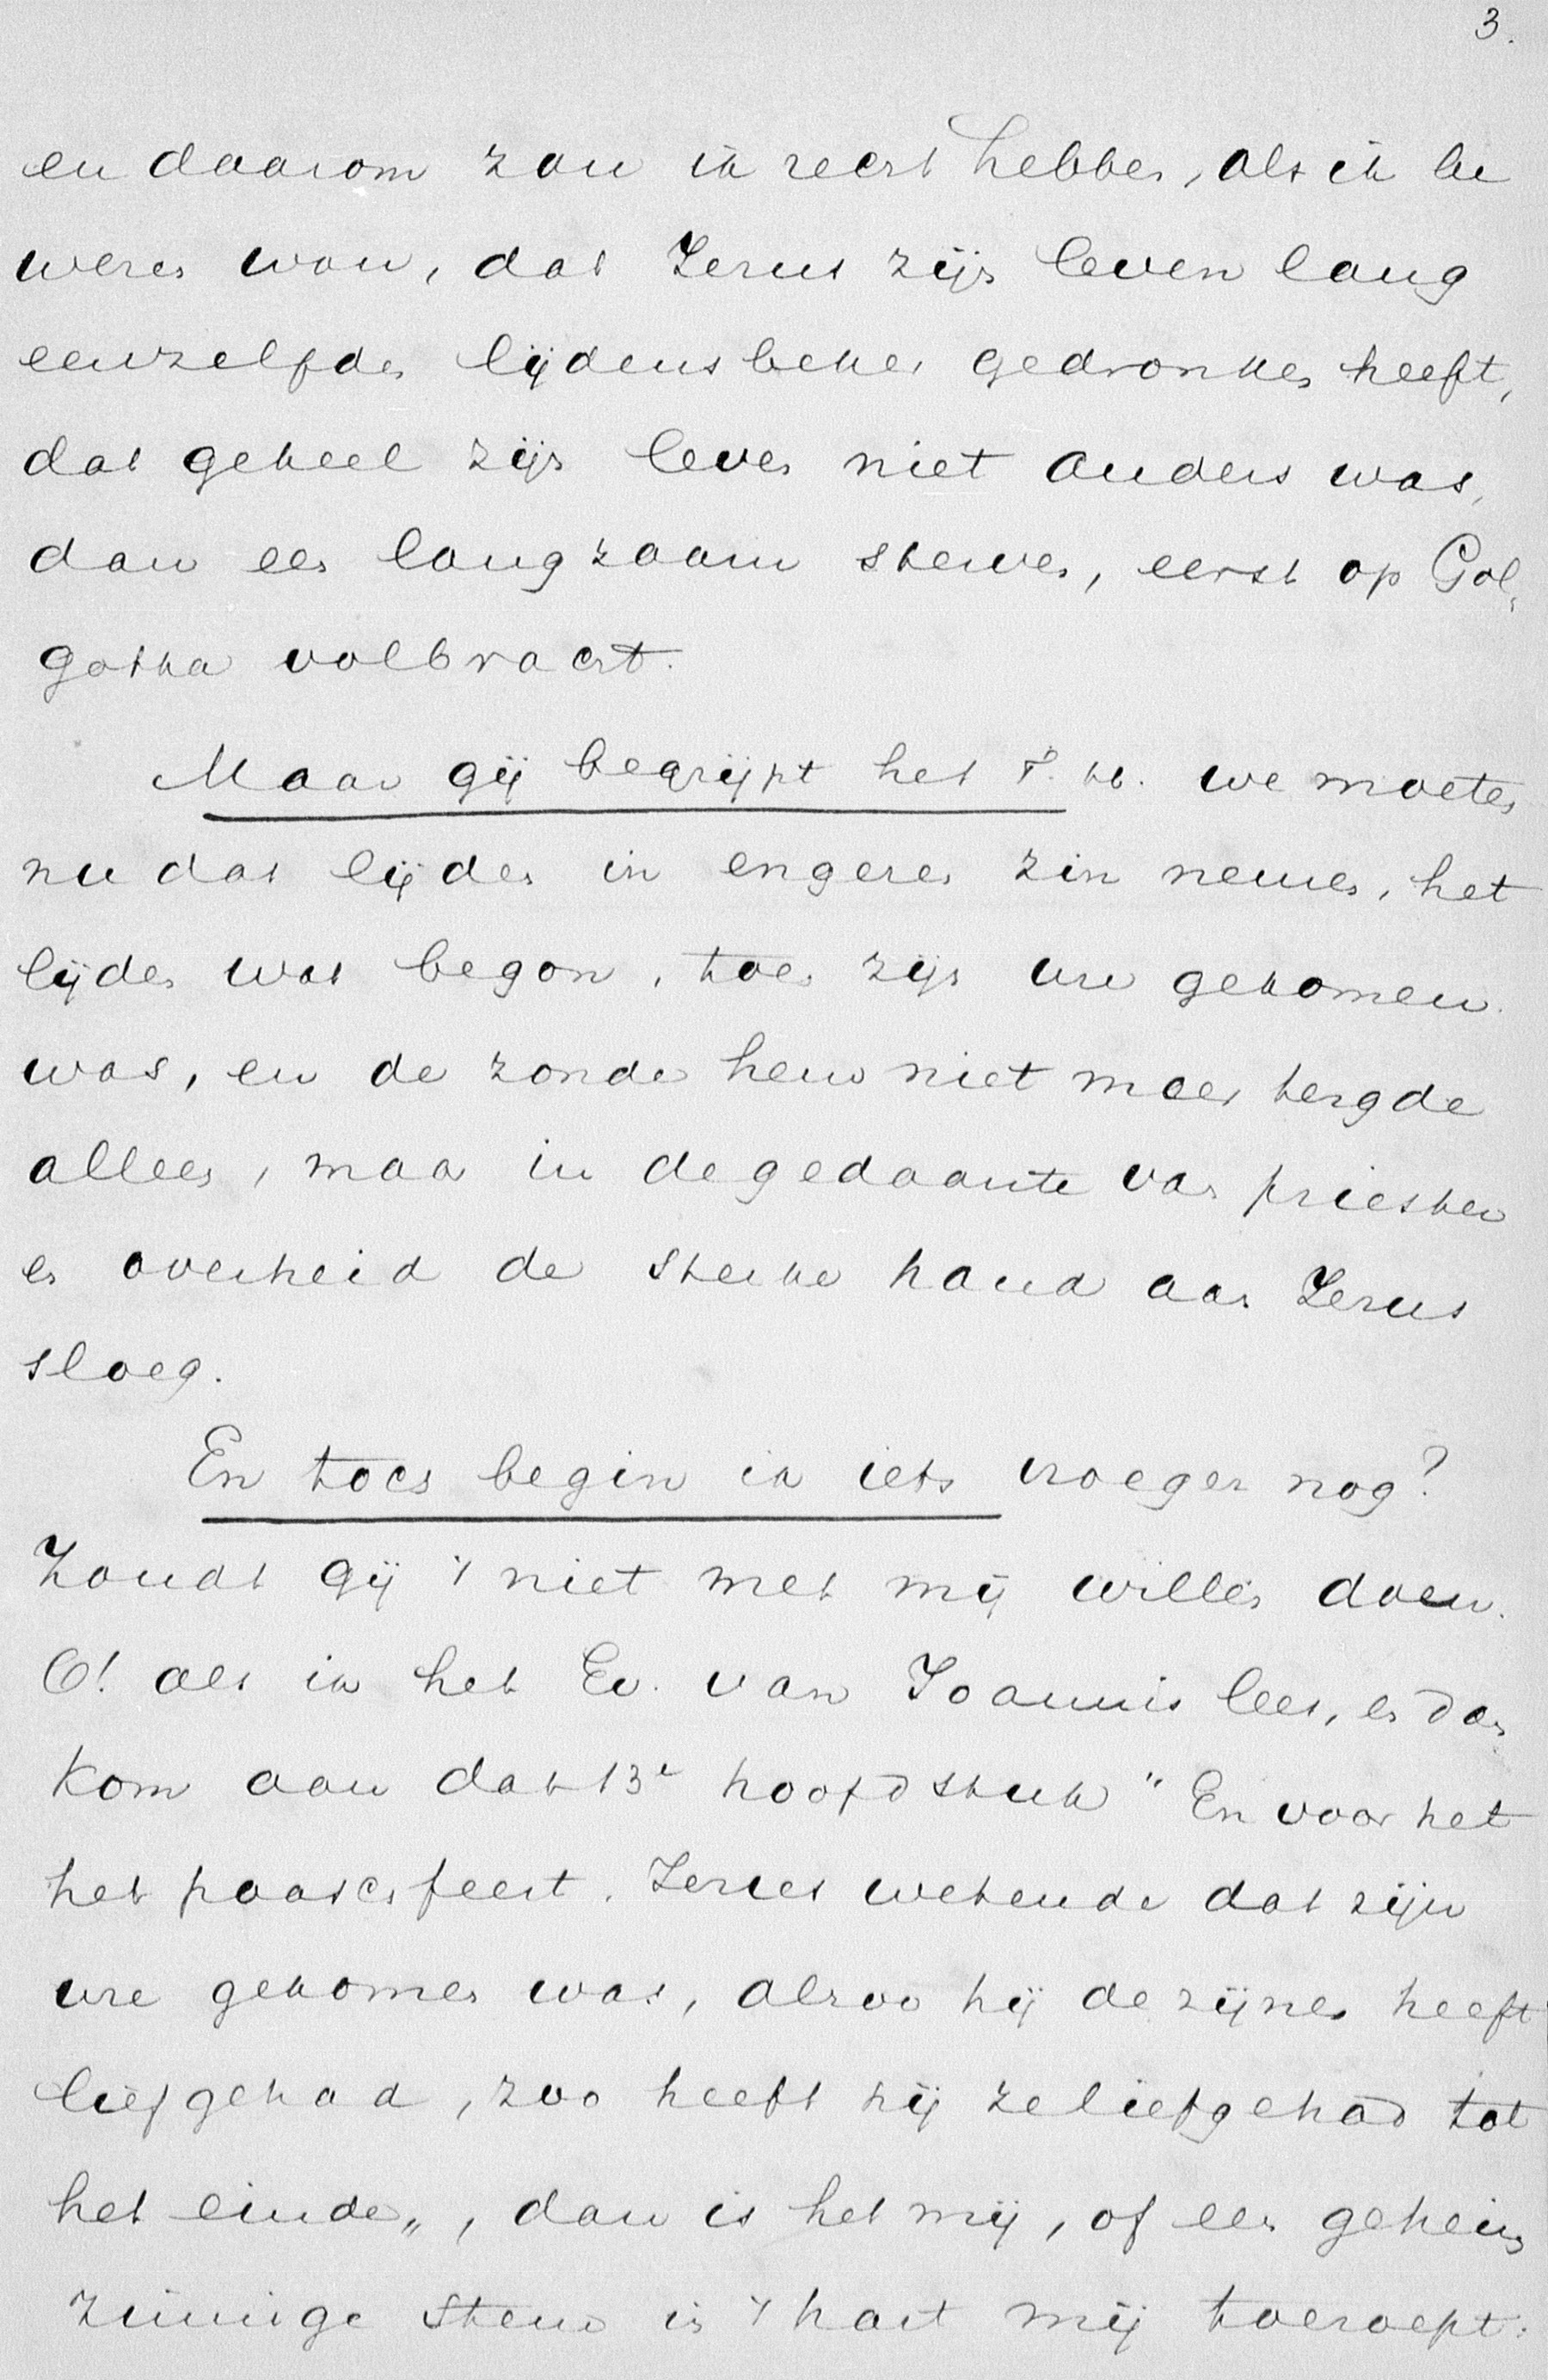 3.
en daarom zou ik recht hebben, als ik be
weren wou, dat Jezus zijn leven lang
eenzelfden lijdensbeker gedronken heeft,
dat geheel zijn leven niet anders was,
dan een langzaam sterven, eerst op Gol„
gotha volbracht.
Maar gij begrijpt het we moeten
nu dat lijden in engeren zin nemen, het
lijden wat begon, toen zijn ure gekomen
was, en de zonde hem niet meer tergde
alleen, maar in de gedaante van priester
en overheid de sterke hand aan Jezus
sloeg.
En toch begin ik iets vroeger nog?
Zoudt gij 't niet met mij willen doen.
O! als ik het Ev. van Joannis lees, en dan
kom aan dat 13e hoofdstuk "En voor het
het paaschfeest. Jezus wetende dat zijn
ure gekomen was, alzoo hij de zijnen heeft
liefgehad, zoo heeft hij ze liefgehad tot
het einde„, dan is het mij, of een geheim
zinnige stem in 't hart mij toeroept: